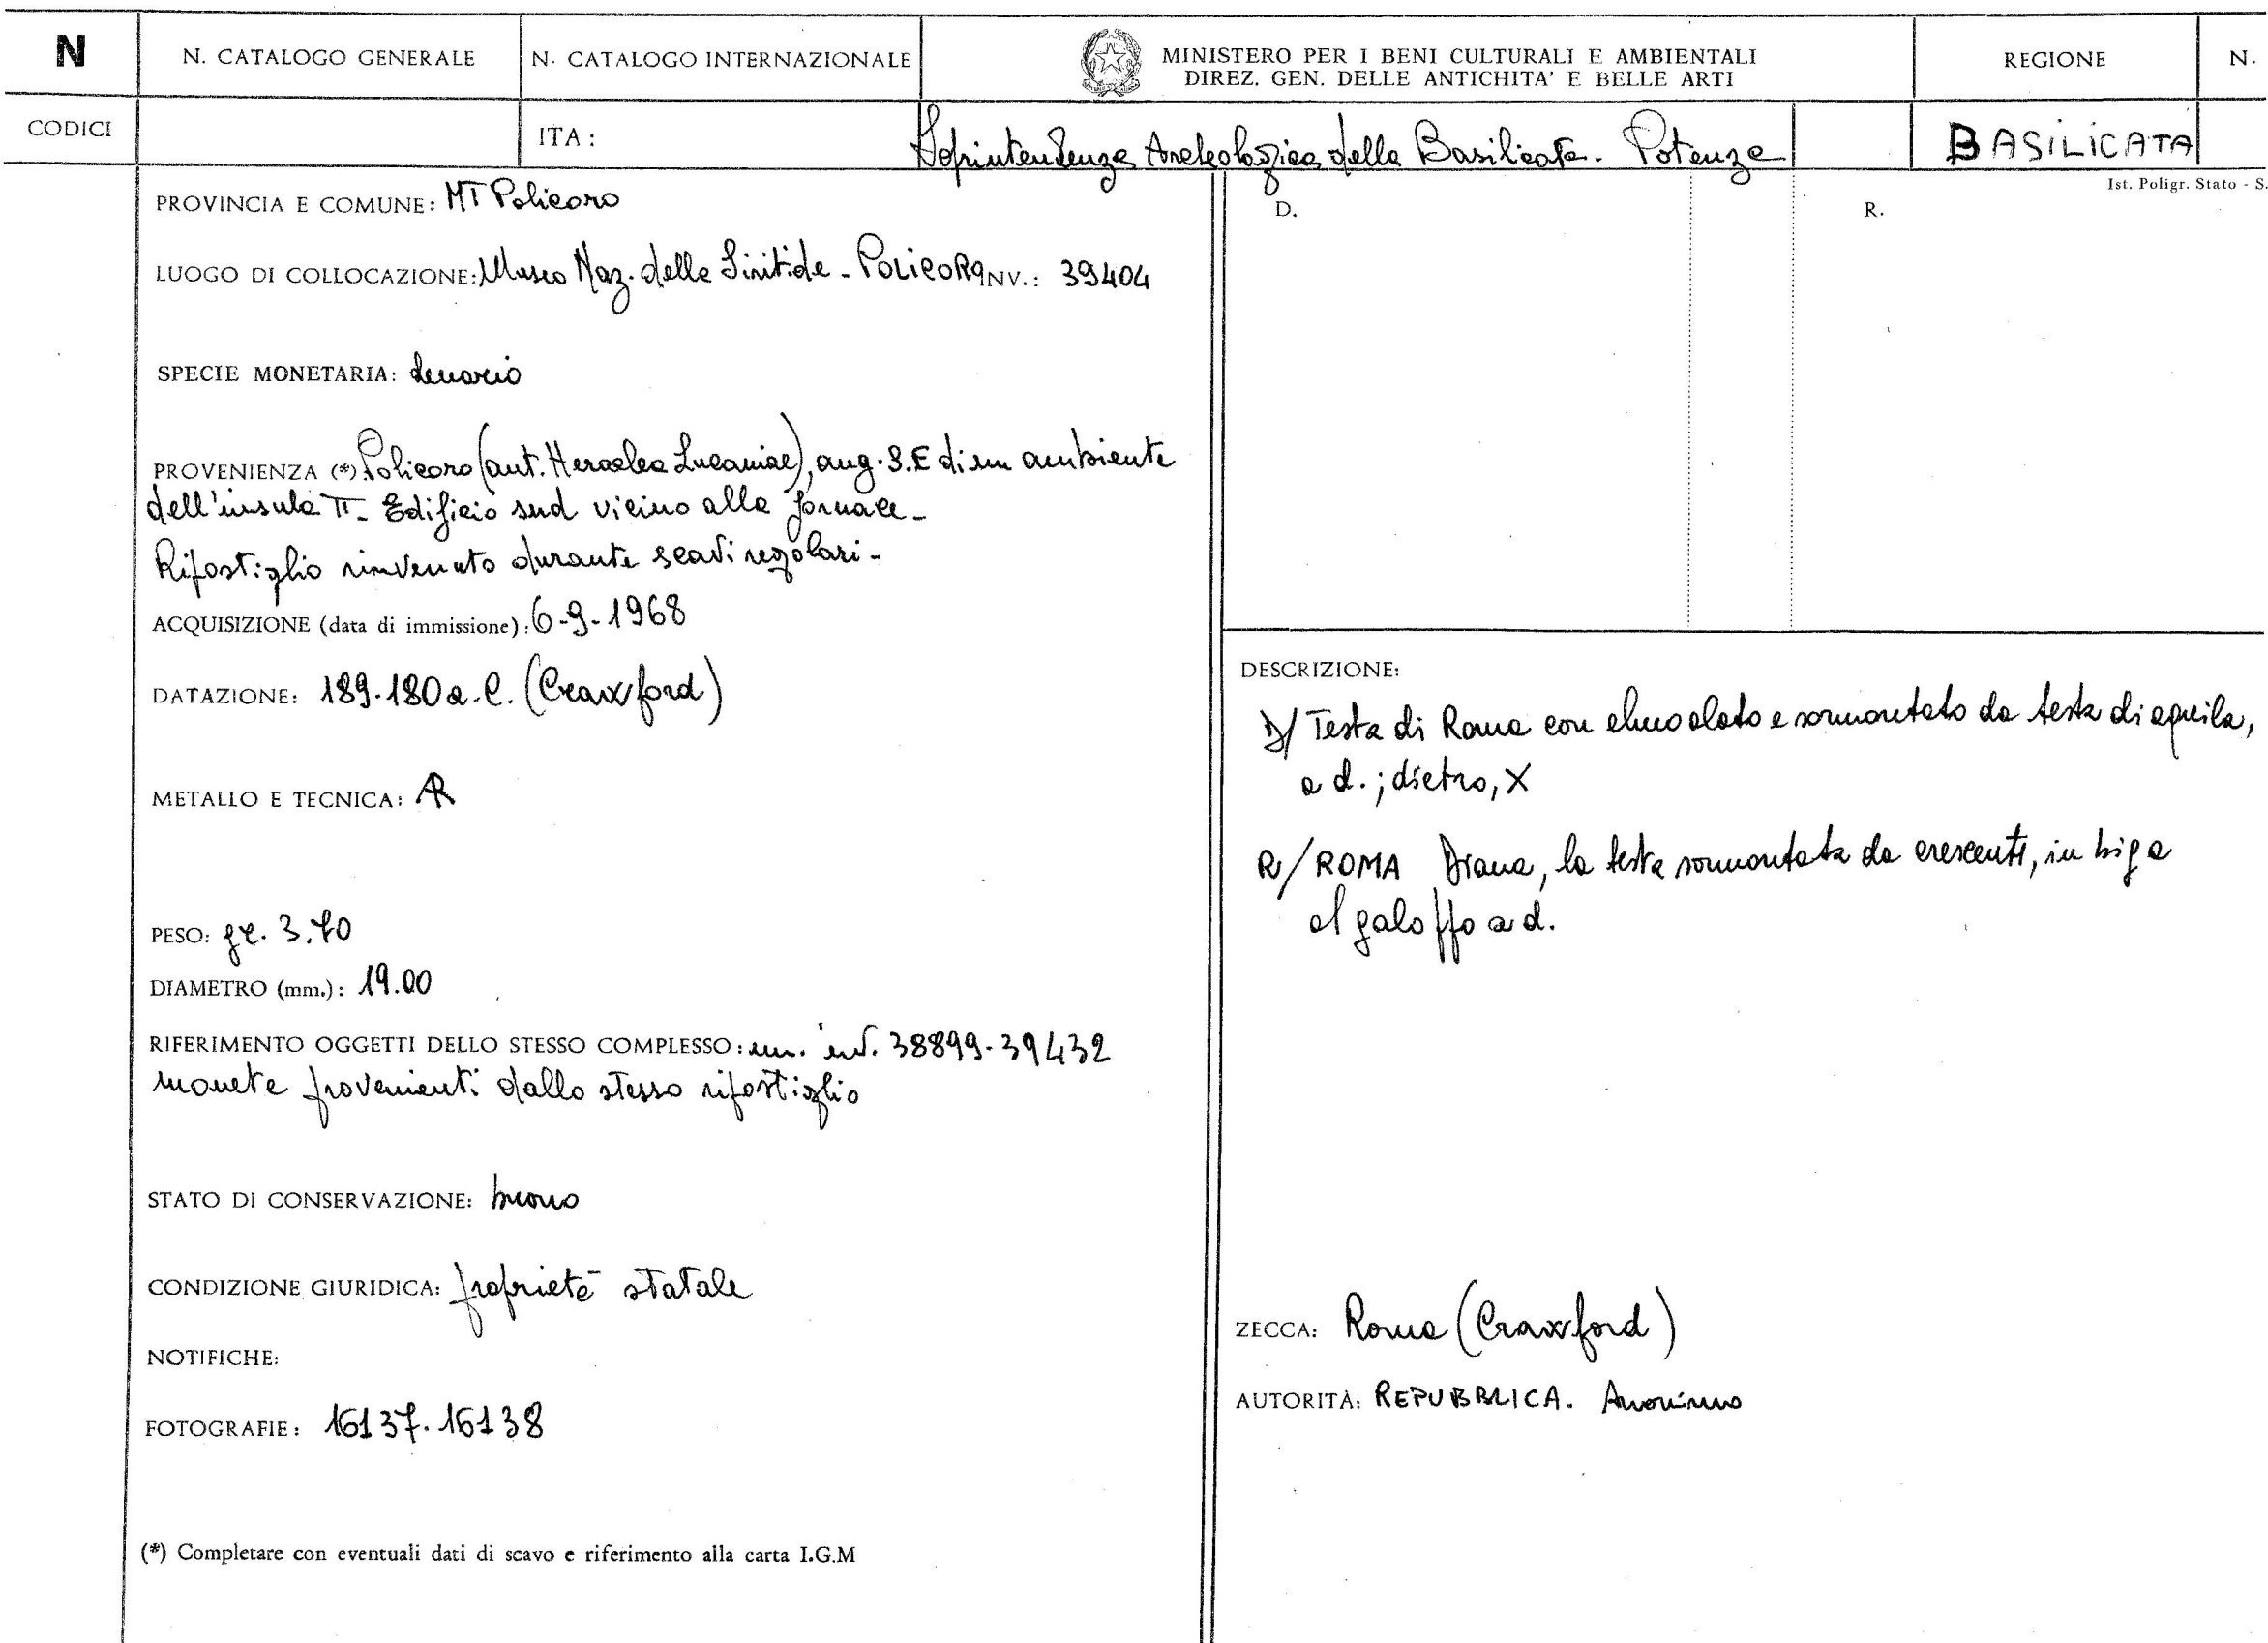 N
N. CATALOGO GENERALE
N. CATALOGO INTERNAZIONALE
MINISTERO PER I BENI CULTURALI E AMBIENTALI
DIREZ. GEN. DELLE ANTICHITA' E BELLE ARTI
REGIONE
N.
CODICI
ITA:
Soprintendenza Archeologica della Basilicata - Potenza
BASILICATA
Ist. Poligr. Stato - S.
PROVINCIA E COMUNE: MT Policoro
LUOGO DI COLLOCAZIONE: Museo Naz. della Siritide - POLICORO INV.: 39404
SPECIE MONETARIA: denario
PROVENIENZA (*) Policoro (ant. Heraclea Lucaniae), ang. S.E di un ambiente
dell'insula II - Edificio sud vicino alla fornace -
Ripostiglio rinvenuto durante scavi regolari -
ACQUISIZIONE (data di immissione): 6-9-1968
DATAZIONE: 189-180 a.C. (Crawford)
METALLO E TECNICA: AR
PESO: gr. 3.70
DIAMETRO (mm.): 19.00
RIFERIMENTO OGGETTI DELLO STESSO COMPLESSO: nn. inv. 38899-39432
monete provenienti dallo stesso ripostiglio
STATO DI CONSERVAZIONE: buono
CONDIZIONE GIURIDICA: proprietà statale
NOTIFICHE:
FOTOGRAFIE: 16137-16138
(*) Completare con eventuali dati di scavo e riferimento alla carta I.G.M
D.
R.
DESCRIZIONE:
D/ Testa di Roma con elmo alato e sormontato da testa di aquila,
a d.; dietro, X
R/ ROMA Diana, la testa sormontata da crescente, in biga
al galoppo a d.
ZECCA: Roma (Crawford)
AUTORITÀ: REPUBBLICA. Anonimo